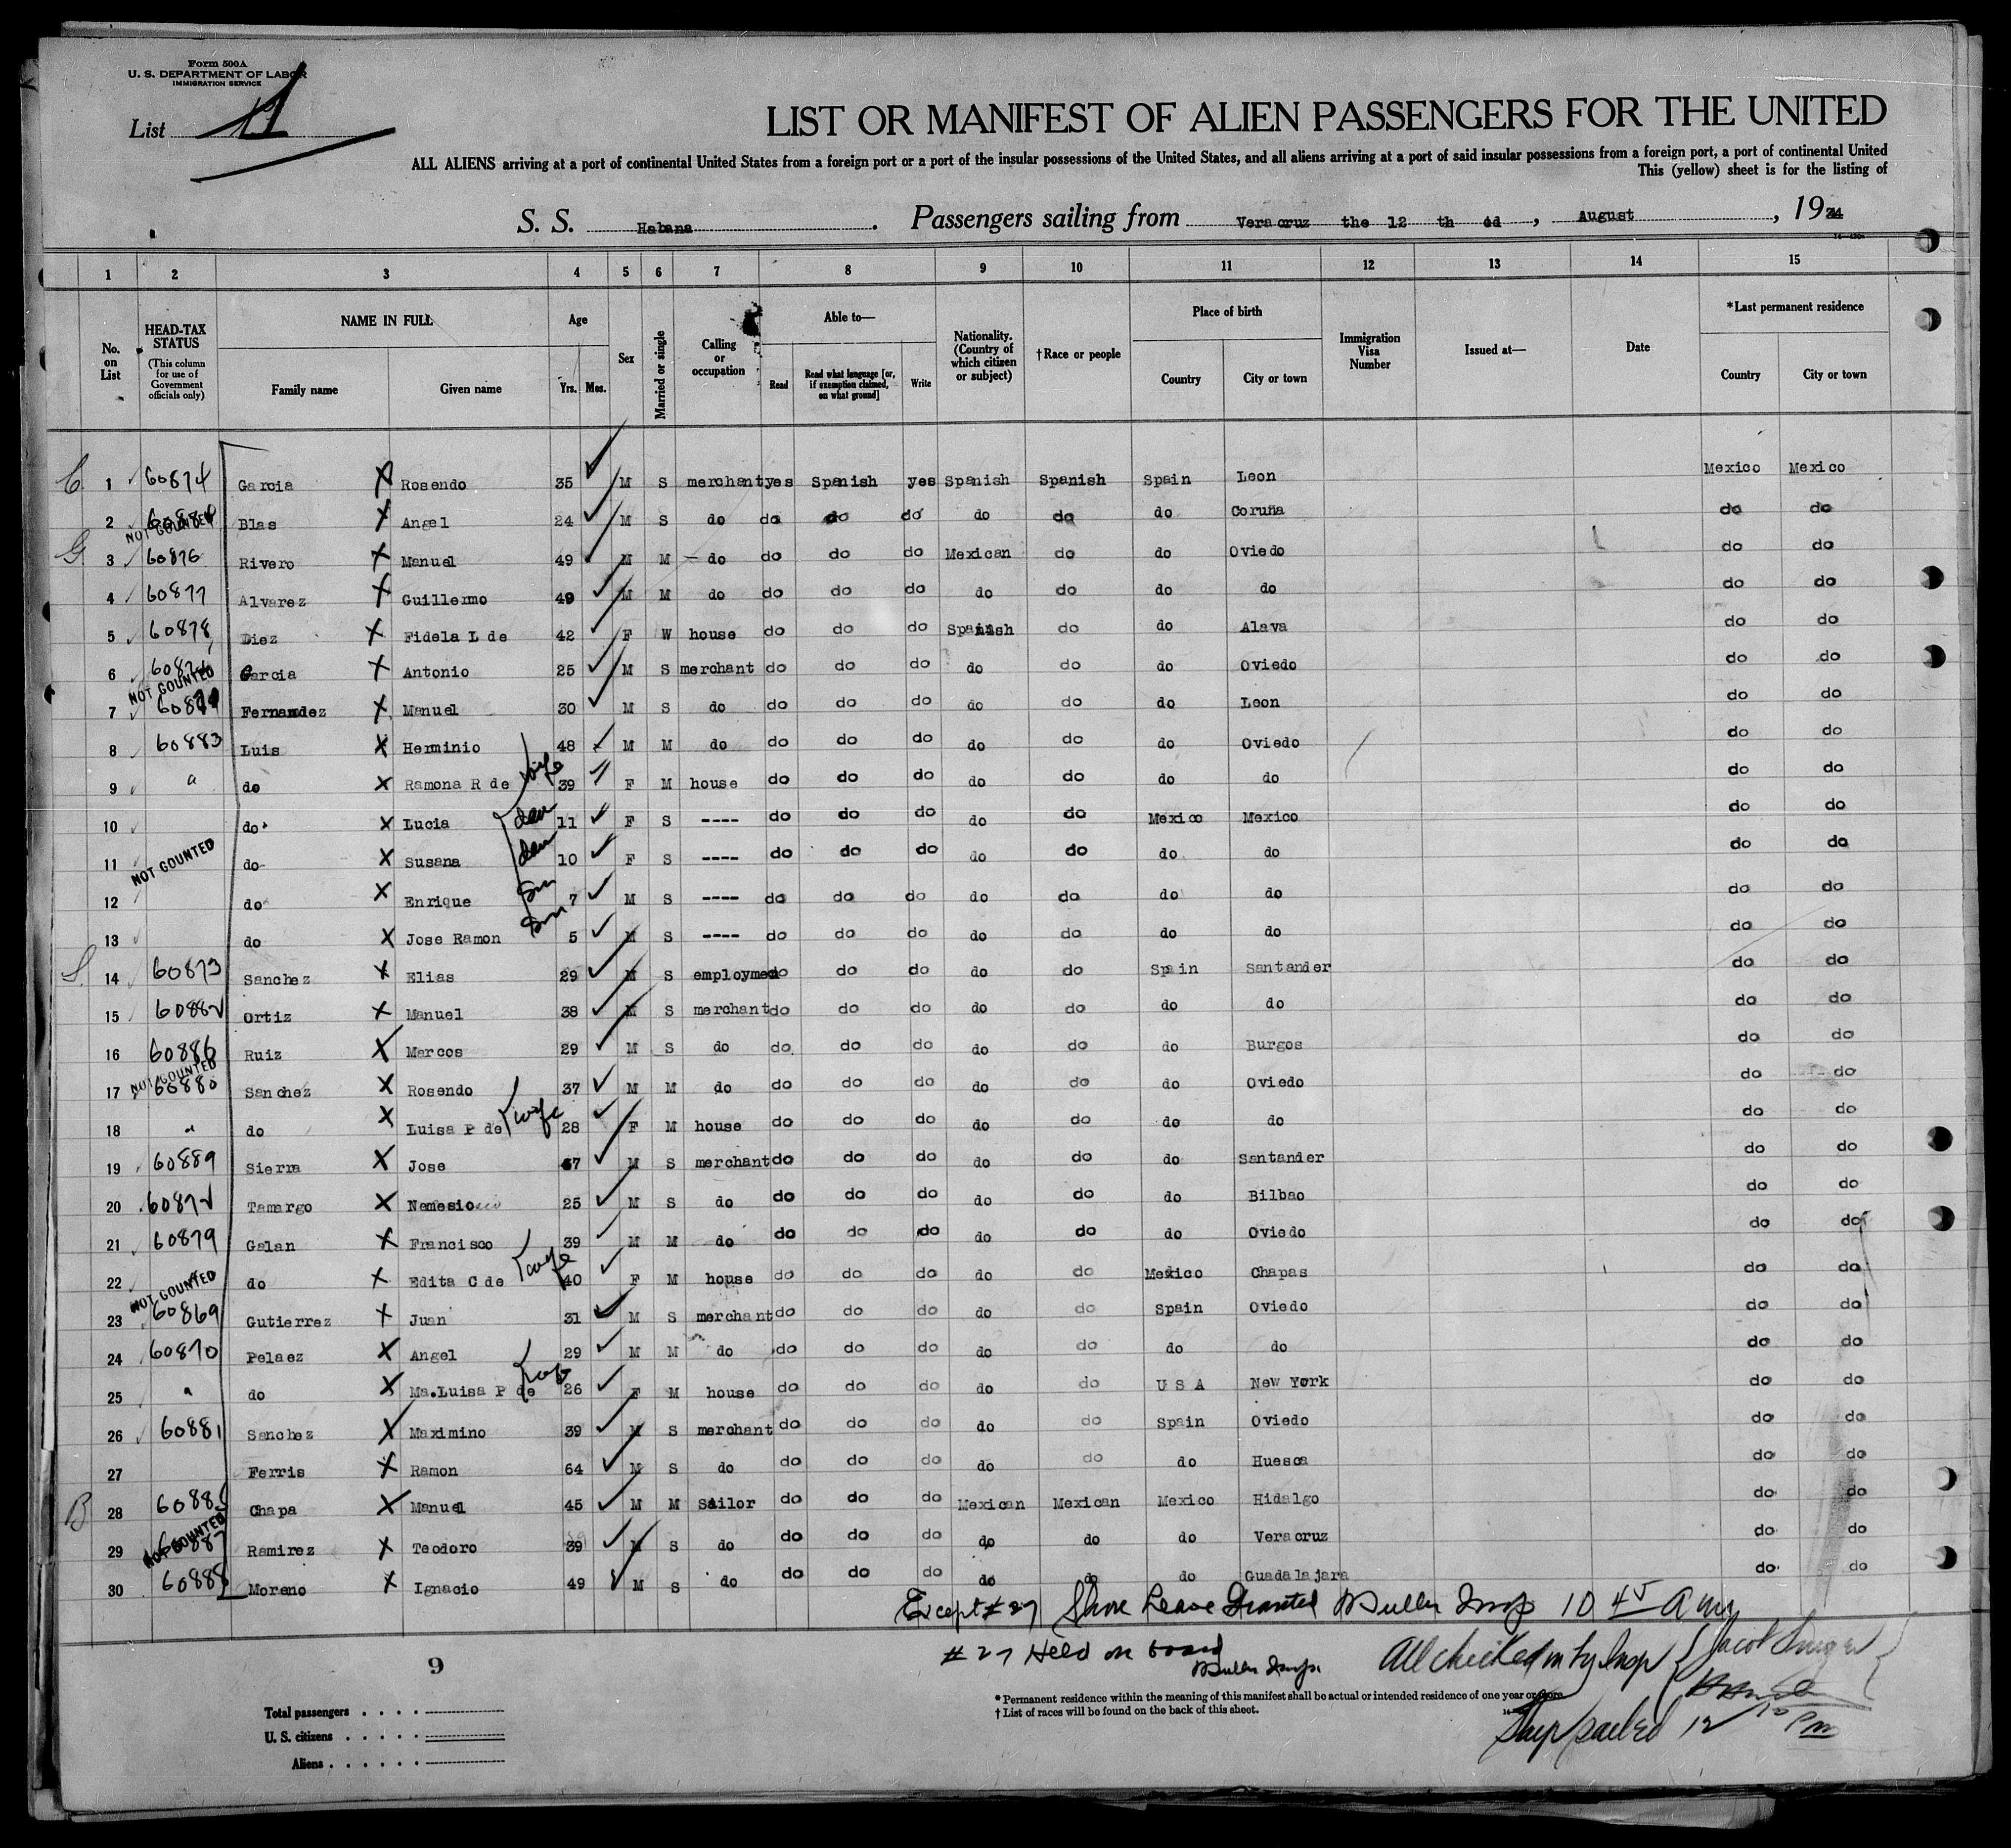 Form 500A
U. S. DEPARTMENT OF LABOR
IMMIGRATION SERVICE
List
LIST OR MANIFEST OF ALIEN PASSENGERS FOR THE UNITED
ALL ALIENS arriving at a port of continental United States from a foreign port or a port of the insular possessions of the United States, and all aliens arriving at a port of said insular possessions from a foreign port, a port of continental United
This (yellow) sheet is for the listing of
S. S. Habana. Passengers sailing from Veracruz the 12 th dd, August, 1934
1 2 3 4 5 6 7 8 9 10 11 12 13 14 15
No. on List
HEAD-TAX STATUS
(This column for use of Government officials only)
NAME IN FULL
Family name
Given name
Age
Yrs. Mos.
Sex
Married or single
Calling or occupation
Able to—
Read
Read what language [or, if exemption claimed, on what ground]
Write
Nationality. (Country of which citizen or subject)
†Race or people
Place of birth
Country
City or town
Immigration Visa Number
Issued at—
Date
*Last permanent residence
Country
City or town
C 1 60874 Garcia X Rosendo 35 M S merchant yes Spanish yes Spanish Spanish Spain Leon Mexico Mexico
2 NOT COUNTED Blas X Angel 24 M S do do do do do do do Coruña do do
G 3 60876 Rivero X Manuel 49 M M do do do do Mexican do do Oviedo do do
4 60877 Alvarez X Guillermo 49 M M do do do do do do do do do do
5 60878 Diez X Fidela L de 42 F W house do do do Spanish do do Alava do do
6 NOT COUNTED Garcia X Antonio 25 M S merchant do do do do do do Oviedo do do
7 Fernandez X Manuel 30 M S do do do do do do do Leon do do
8 60883 Luis X Herminio 48 M M do do do do do do do Oviedo do do
9 " do X Ramona R de wife 39 F M house do do do do do do do do do
10 do X Lucia dau 11 F S ---- do do do do do Mexico Mexico do do
11 NOT COUNTED do X Susana dau 10 F S ---- do do do do do do do do do
12 do X Enrique Son 7 M S ---- do do do do do do do do do
13 do X Jose Ramon Son 5 M S ---- do do do do do do do do do
S. 14 60873 Sanchez X Elias 29 M S employmed do do do do do Spain Santander do do
15 60882 Ortiz X Manuel 38 M S merchant do do do do do do do do do
16 60886 Ruiz X Marcos 29 M S do do do do do do do Burgos do do
17 NOT COUNTED 60880 Sanchez X Rosendo 37 M M do do do do do do do Oviedo do do
18 " do X Luisa P de wife 28 F M house do do do do do do do do do
19 60889 Sierra X Jose 67 M S merchant do do do do do do Santander do do
20 60872 Tamargo X Nemesio 25 M S do do do do do do do Bilbao do do
21 60879 Galan X Francisco 39 M M do do do do do do do Oviedo do do
22 NOT COUNTED do X Edita C de wife 40 F M house do do do do do Mexico Chapas do do
23 60869 Gutierrez X Juan 31 M S merchant do do do do do Spain Oviedo do do
24 60870 Pelaez X Angel 29 M M do do do do do do do do do do
25 " do X Ma.Luisa P de wife 26 F M house do do do do do U S A New York do do
26 60881 Sanchez X Maximino 39 M S merchant do do do do do Spain Oviedo do do
27 Ferris X Ramon 64 M S do do do do do do do Huesca do do
B 28 60885 Chapa X Manuel 45 M M Sailor do do do Mexican Mexican Mexico Hidalgo do do
29 NOT COUNTED 60887 Ramirez X Teodoro 39 M S do do do do do do do Veracruz do do
30 60888 Moreno X Ignacio 49 M S do do do do do do do Guadalajara do do
Except #27 Shore Leave Granted Muller Insp 10 45 a m
#27 Held on board
Muller Insp.
All checked in by Insp
Ship sailed 12 10 Pm
9
Total passengers
U. S. citizens
Aliens
* Permanent residence within the meaning of this manifest shall be actual or intended residence of one year or more.
† List of races will be found on the back of this sheet.